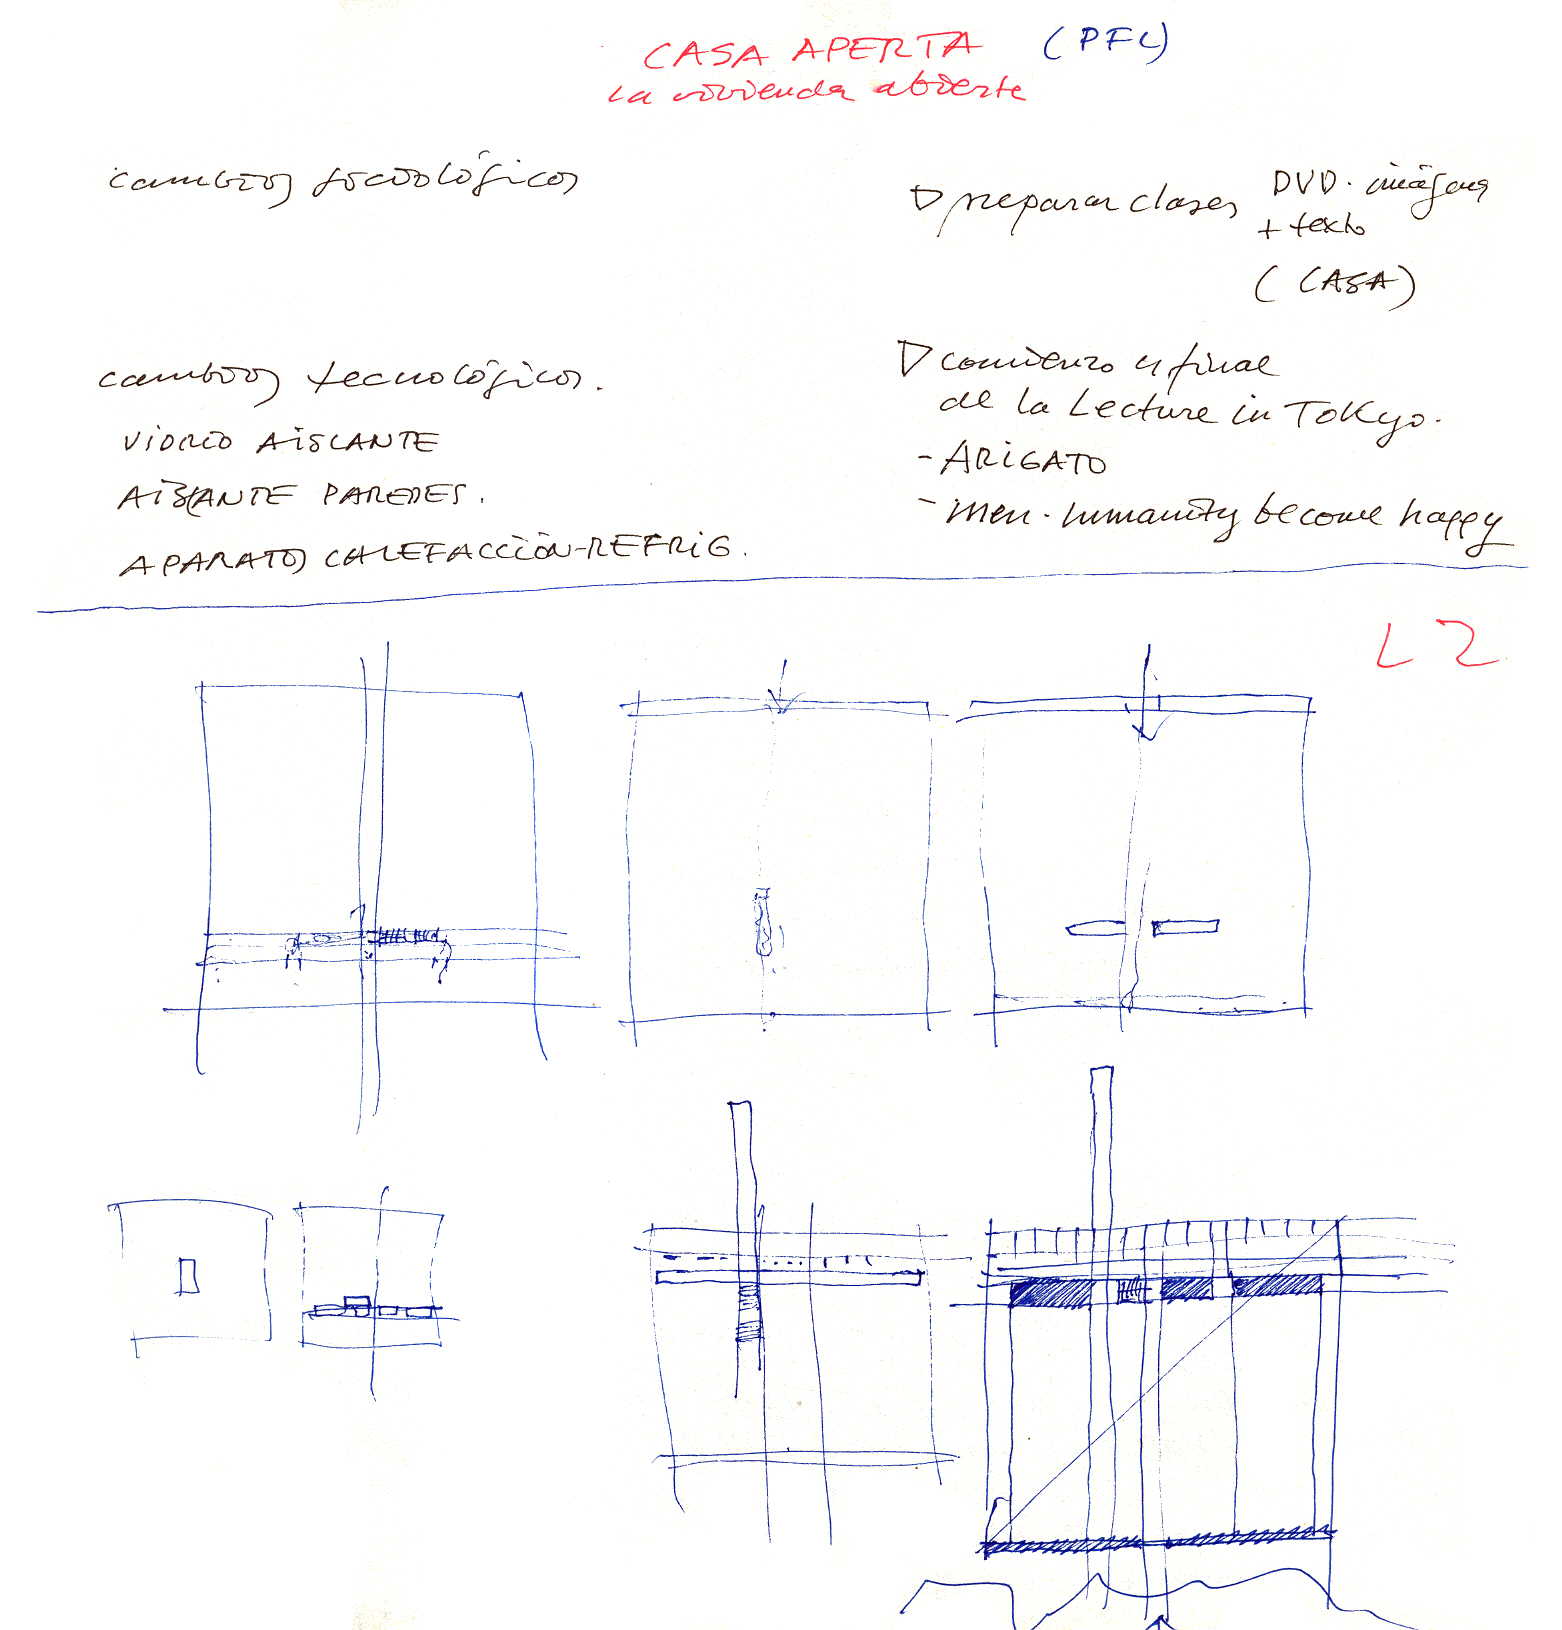 CASA APERTA (PFC)
la vivienda abierta
cambios sociológicos
preparar clases DVD. imágenes
+ texto
(CASA)
cambios tecnológicos.
VIDRIO AISLANTE
AISLANTE PAREDES.
APARATOS CALEFACCIÓN-REFRIG.
comienzo y final
de la Lecture in Tokyo.
- ARIGATO
- men. humanity become happy
L2